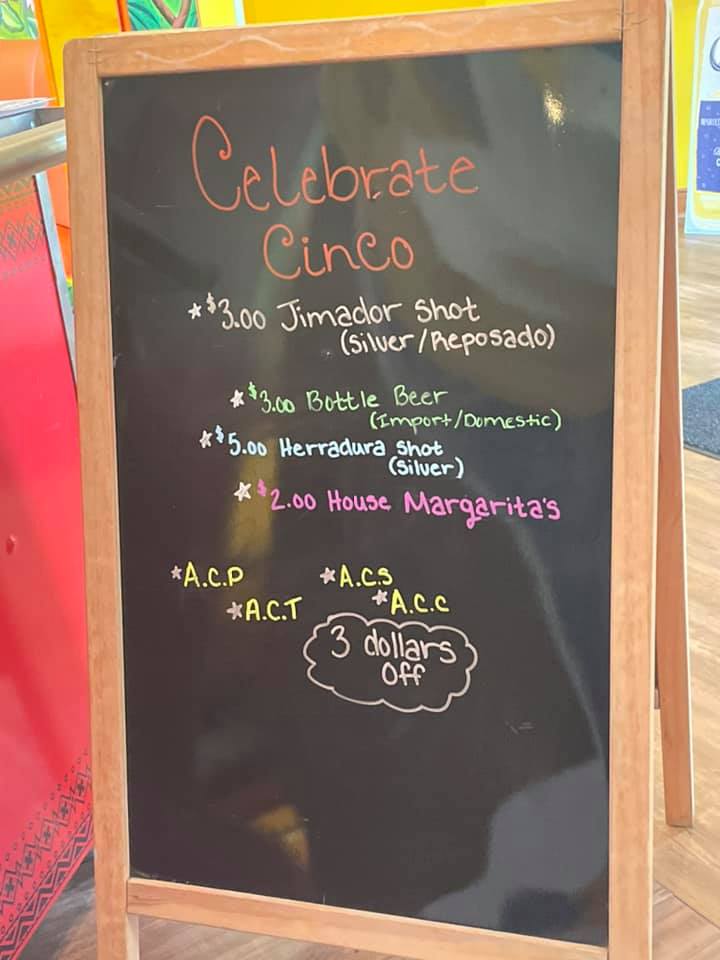 Celebrate
Cinco
*$3.00 Jimador Shot
(Silver/Reposado)
*$3.00 Bottle Beer
(Import/Domestic)
*$5.00 Herradura Shot
(Silver)
*$2.00 House Margarita's
*A.C.P *A.C.S
*A.C.T *A.C.C
3 dollars
Off